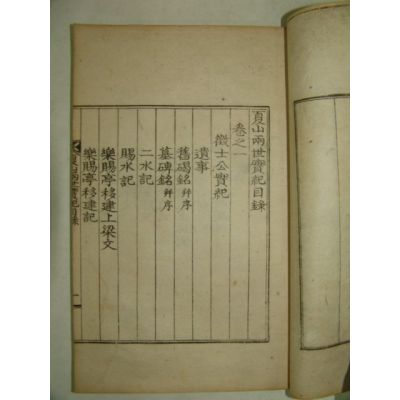 夏山兩世實紀目錄
卷之一
徵士公實紀
遺事
舊碣銘 幷序
墓碑銘 幷序
二水記
賜水記
樂賜亭移建上梁文
樂賜亭移建記
夏山兩世實紀目錄 一